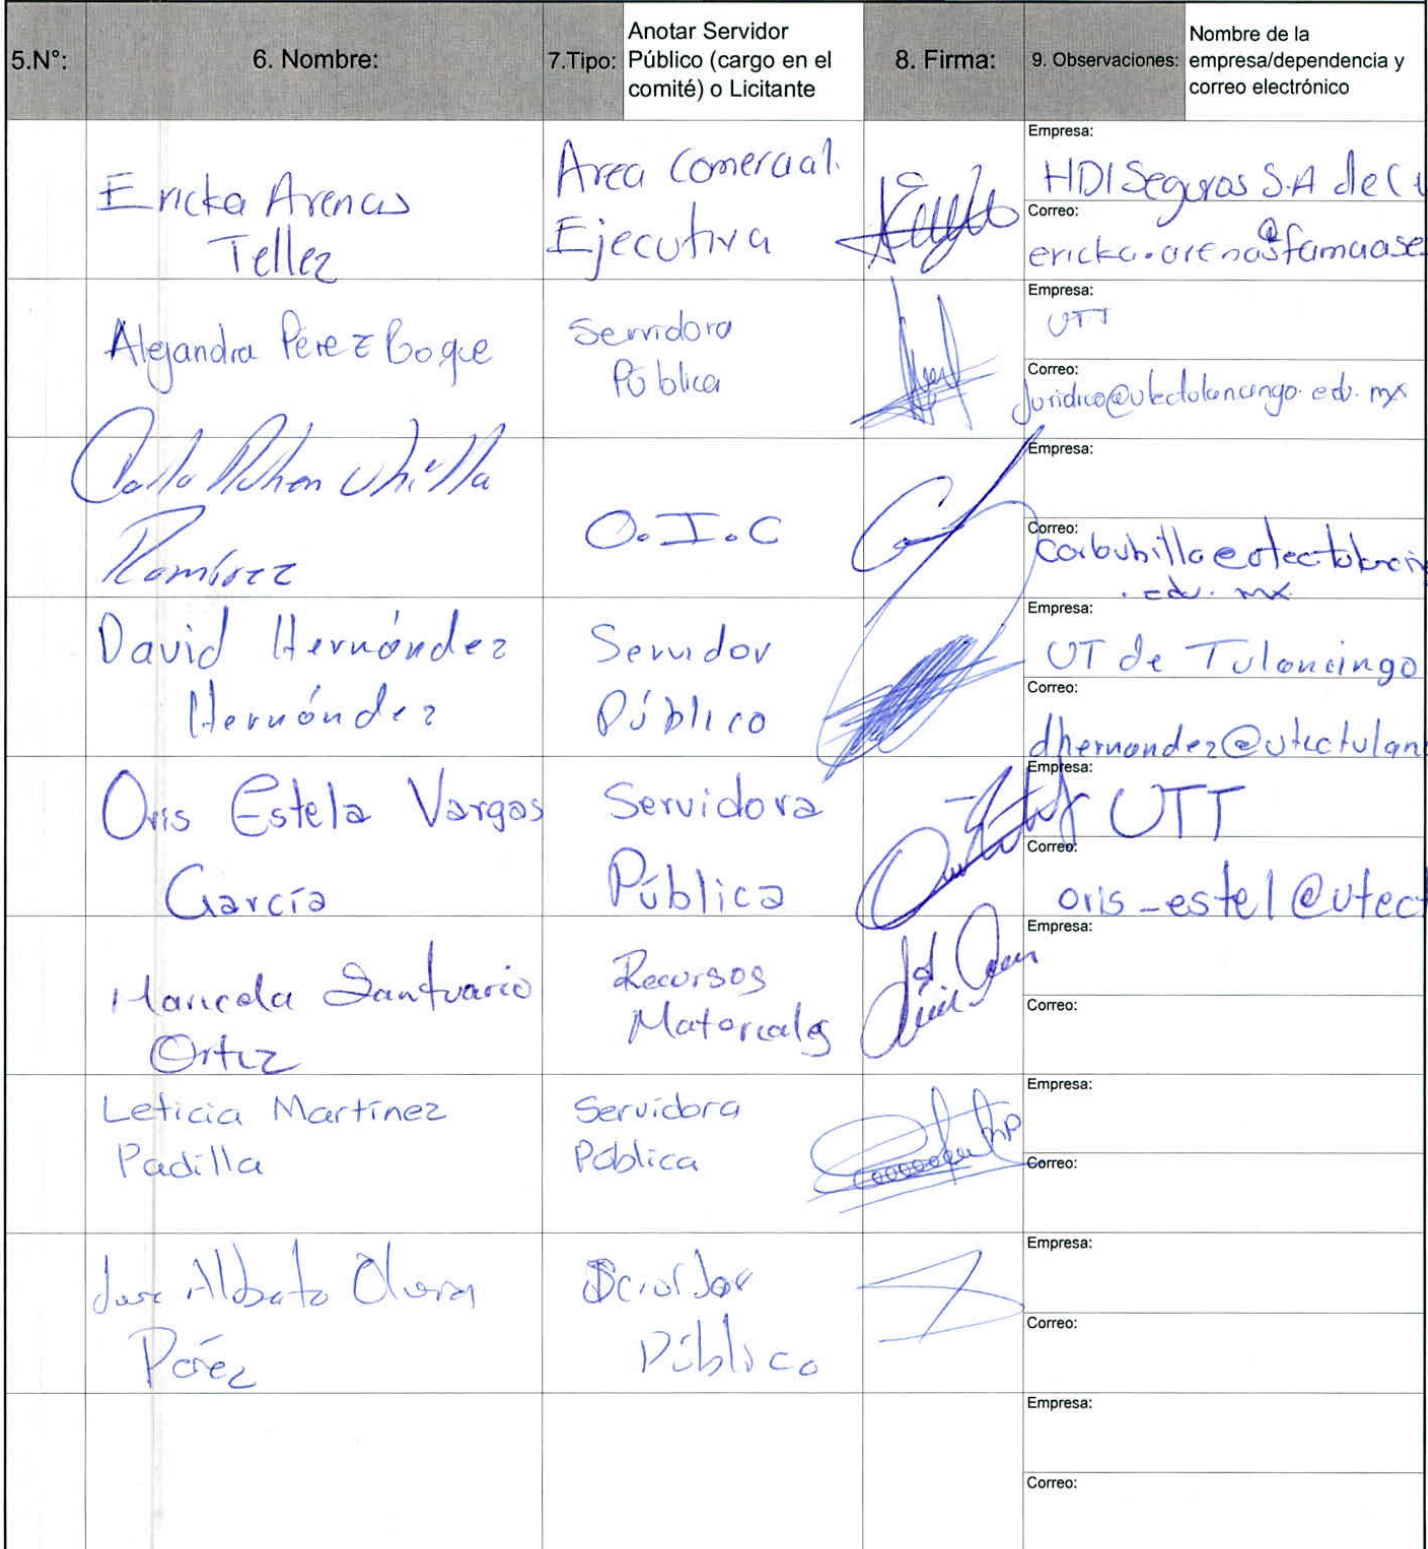 5.N°:
6. Nombre:
7.Tipo:
Anotar Servidor
Público (cargo en el
comité) o Licitante
8. Firma:
9. Observaciones:
Nombre de la
empresa/dependencia y
correo electrónico
Ericka Arenas
Tellez
Area Comercial.
Ejecutiva
Empresa:
HDI Seguros S.A de C
Correo:
ericka.arenas@famuase
Alejandra Pérez
Servidora
Pública
Empresa:
UTT
Correo:
Juridico@utectulancingo.edu.mx
Ubilla
Ramírez
O.I.C
Empresa:
Correo:
.edu.mx
David Hernández
Hernández
Servidor
Público
Empresa:
UT de Tulancingo
Correo:
dhernandez@utectulan
Oris Estela Vargas
García
Servidora
Pública
Empresa:
UTT
Correo:
oris_estel@utect
Maricela Santuario
Ortiz
Recursos
Materiales
Empresa:
Correo:
Leticia Martínez
Padilla
Servidora
Pública
Empresa:
Correo:
Jose Alberto Olvera
Pérez
Servidor
Público
Empresa:
Correo:
Empresa:
Correo: